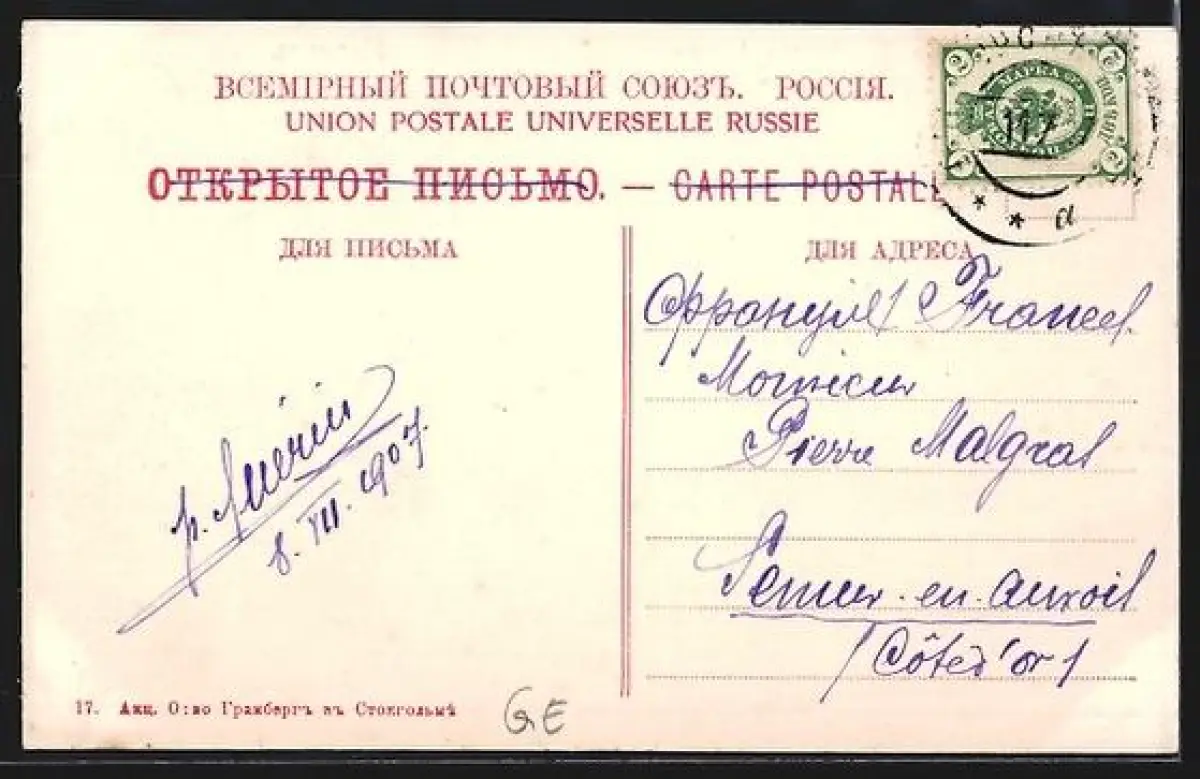 ВСЕМІРНЫЙ ПОЧТОВЫЙ СОЮЗЪ. РОССІЯ.
UNION POSTALE UNIVERSELLE RUSSIE
ОТКРЫТОЕ ПИСЬМО. — CARTE POSTALE
ДЛЯ ПИСЬМА
p. Guérin
8. VII. 1907.
17. Акц. О:во Гранбергъ въ Стокгольмѣ
GE
2
МАРКА
2
2
117
a
ДЛЯ АДРЕСА
Monsieur
Pierre Malgral
Semur-en-Auxois
(Côte d'or)